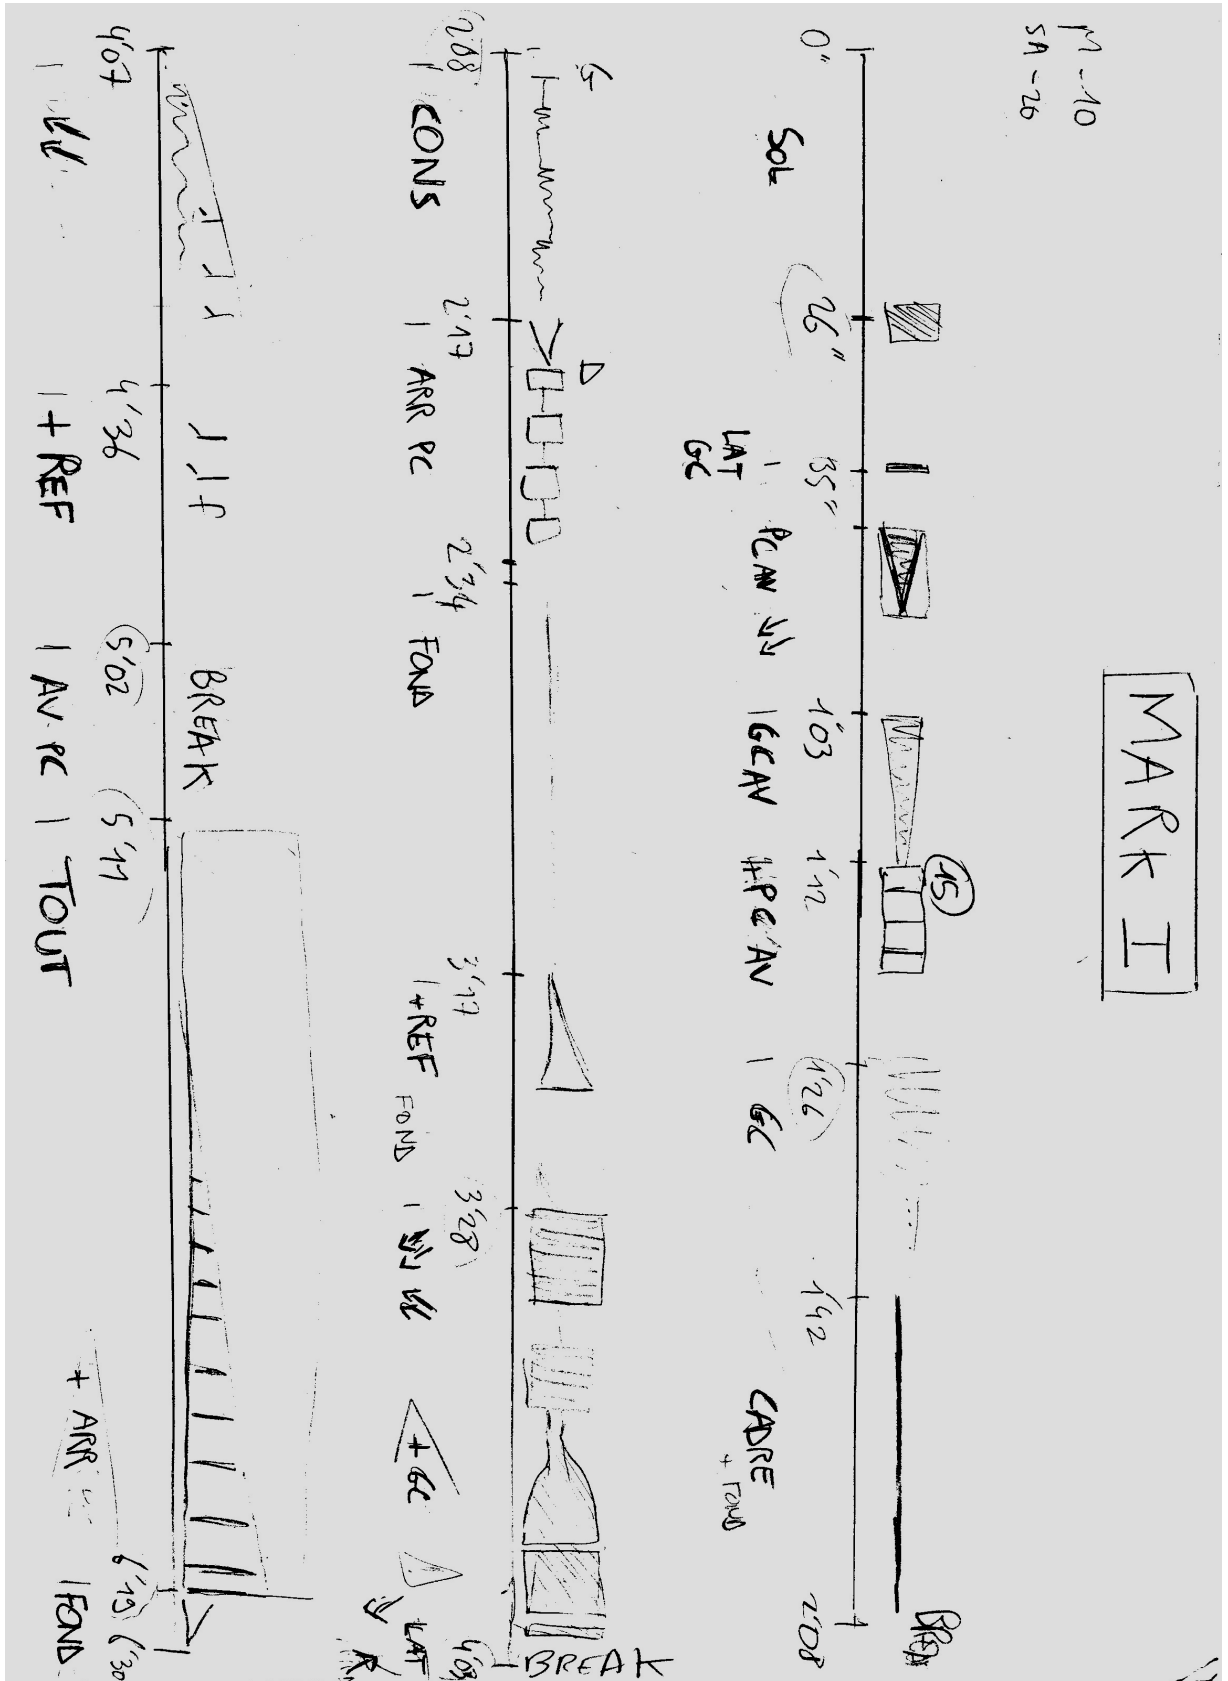 M -10
SA -26
MARK I
0" 26" 35" 1'03 1'12 1'26 1'42 2'08
15
BREAK
SOL LAT GC PC AV GC AV +PC AV GC CADRE + FOND
G D
2'08 2'17 2'34 3'17 3'28 4'03
BREAK
CONS ARR PC FOND +REF FOND +GC LAT R
BREAK
4'07 4'36 5'02 5'11 6'19 6'30
+REF AV PC TOUT + ARR FOND